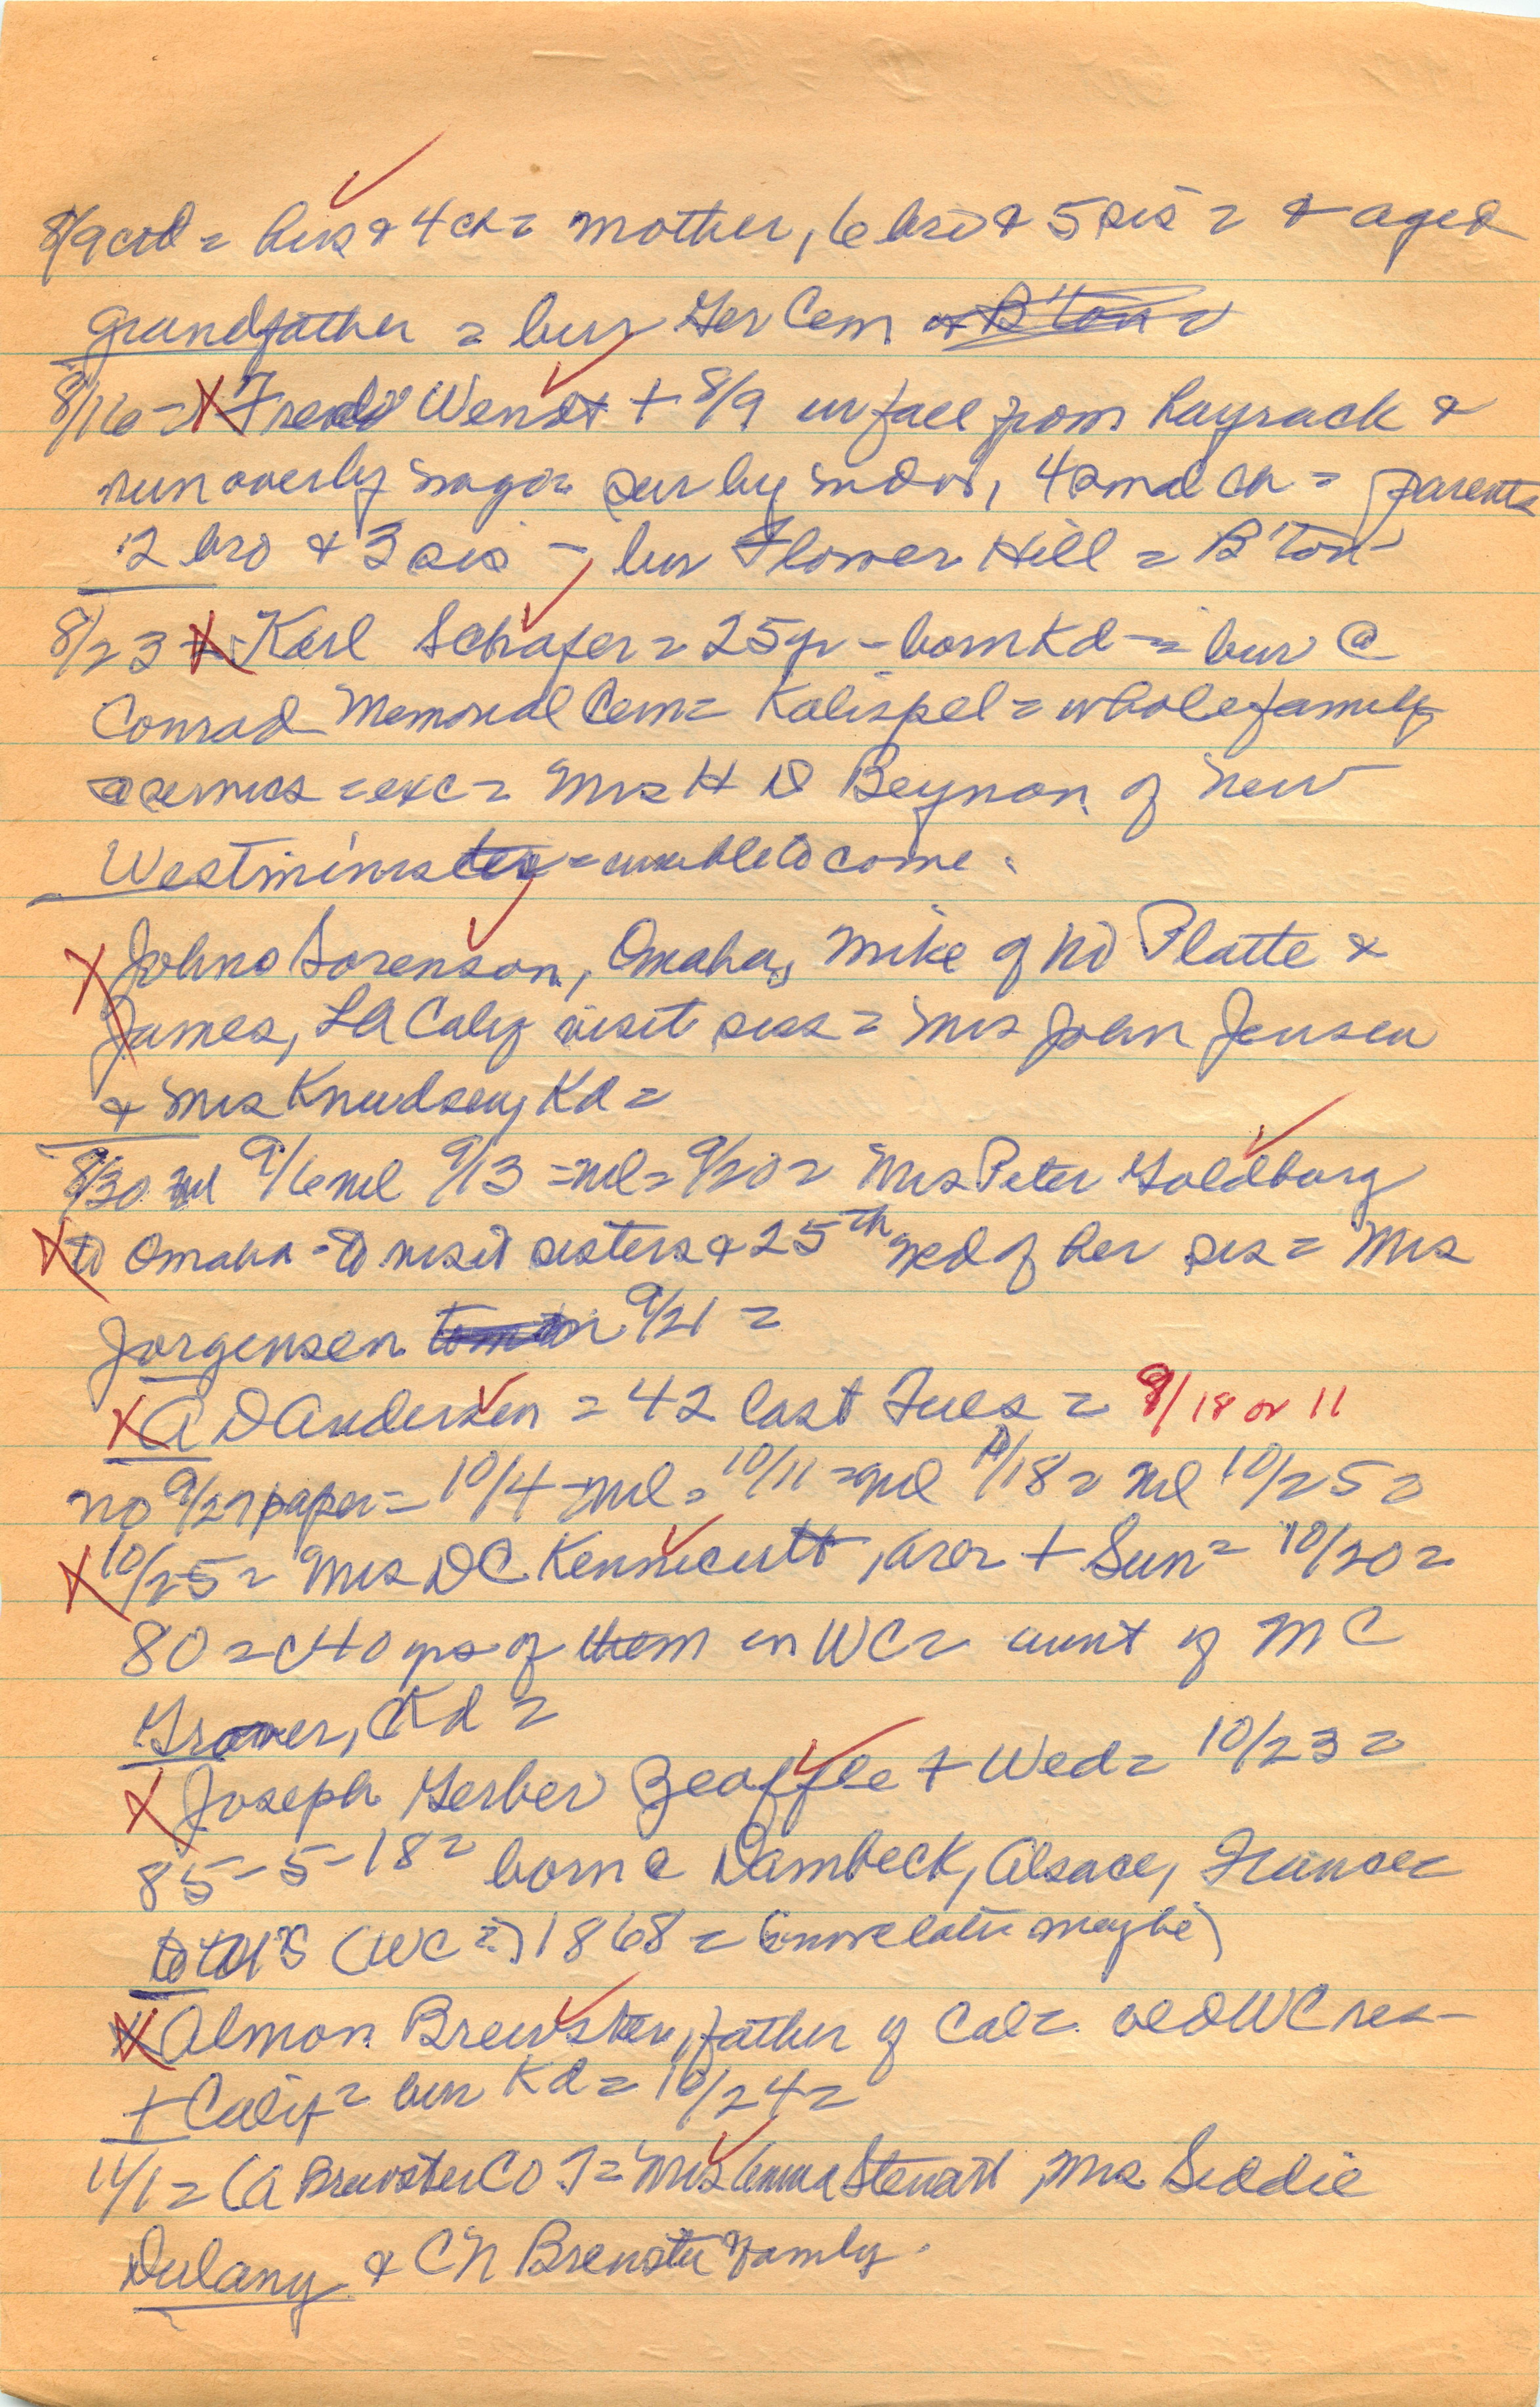 8/9 cod = hus & 4 ch = mother, 6 bro & 5 sis = & aged
grandfather = bur Ger Cem
8/16 = X Fred Wendt + 8/9 in fall from hayrack &
run over by wagon sur by widow, 4 small ch = parents
2 bro & 3 sis - bur Flower Hill = B'ton
8/23 X Karl Schafer = 25 yr - born Kd = bur @
Conrad Memorial Cem = Kalispel = whole family
@ services = exc = Mrs H D Beynon of New
Westminster = unable to come.
X John Sorenson, Omaha, Mike of No Platte &
James, LA Calif visit siss = Mrs John Jensen
& Mrs Knudsen, Kd =
8/30 nil 9/6 nil 9/13 = nil = 9/20 = Mrs Peter Goldborg
X to Omaha - to visit sisters & 25th wed of her sis = Mrs
Jorgensen 9/21 =
X A D Andersen = 42 last Tues = 9/18 or 11
no 9/27 paper = 10/4 - nil = 10/11 = nil 10/18 = nil 10/25 =
X 10/25 = Mrs DC Kennicutt, + Sun = 10/20 =
80 = 40 yrs of them in WC = aunt of M C
Grover, Kd =
X Joseph Gerber + Wed = 10/23 =
85-5-18 = born @ Dambeck, Alsace, France =
to US (WC?) 1868 = (more later maybe)
X Almon Brewster, father of Cal = old WC res -
+ Calif = bur Kd = 10/24 =
11/1 = (A Brewster CO T = Mrs Emma Stewart, Mrs Seddie
Dulany & CN Brewster family.